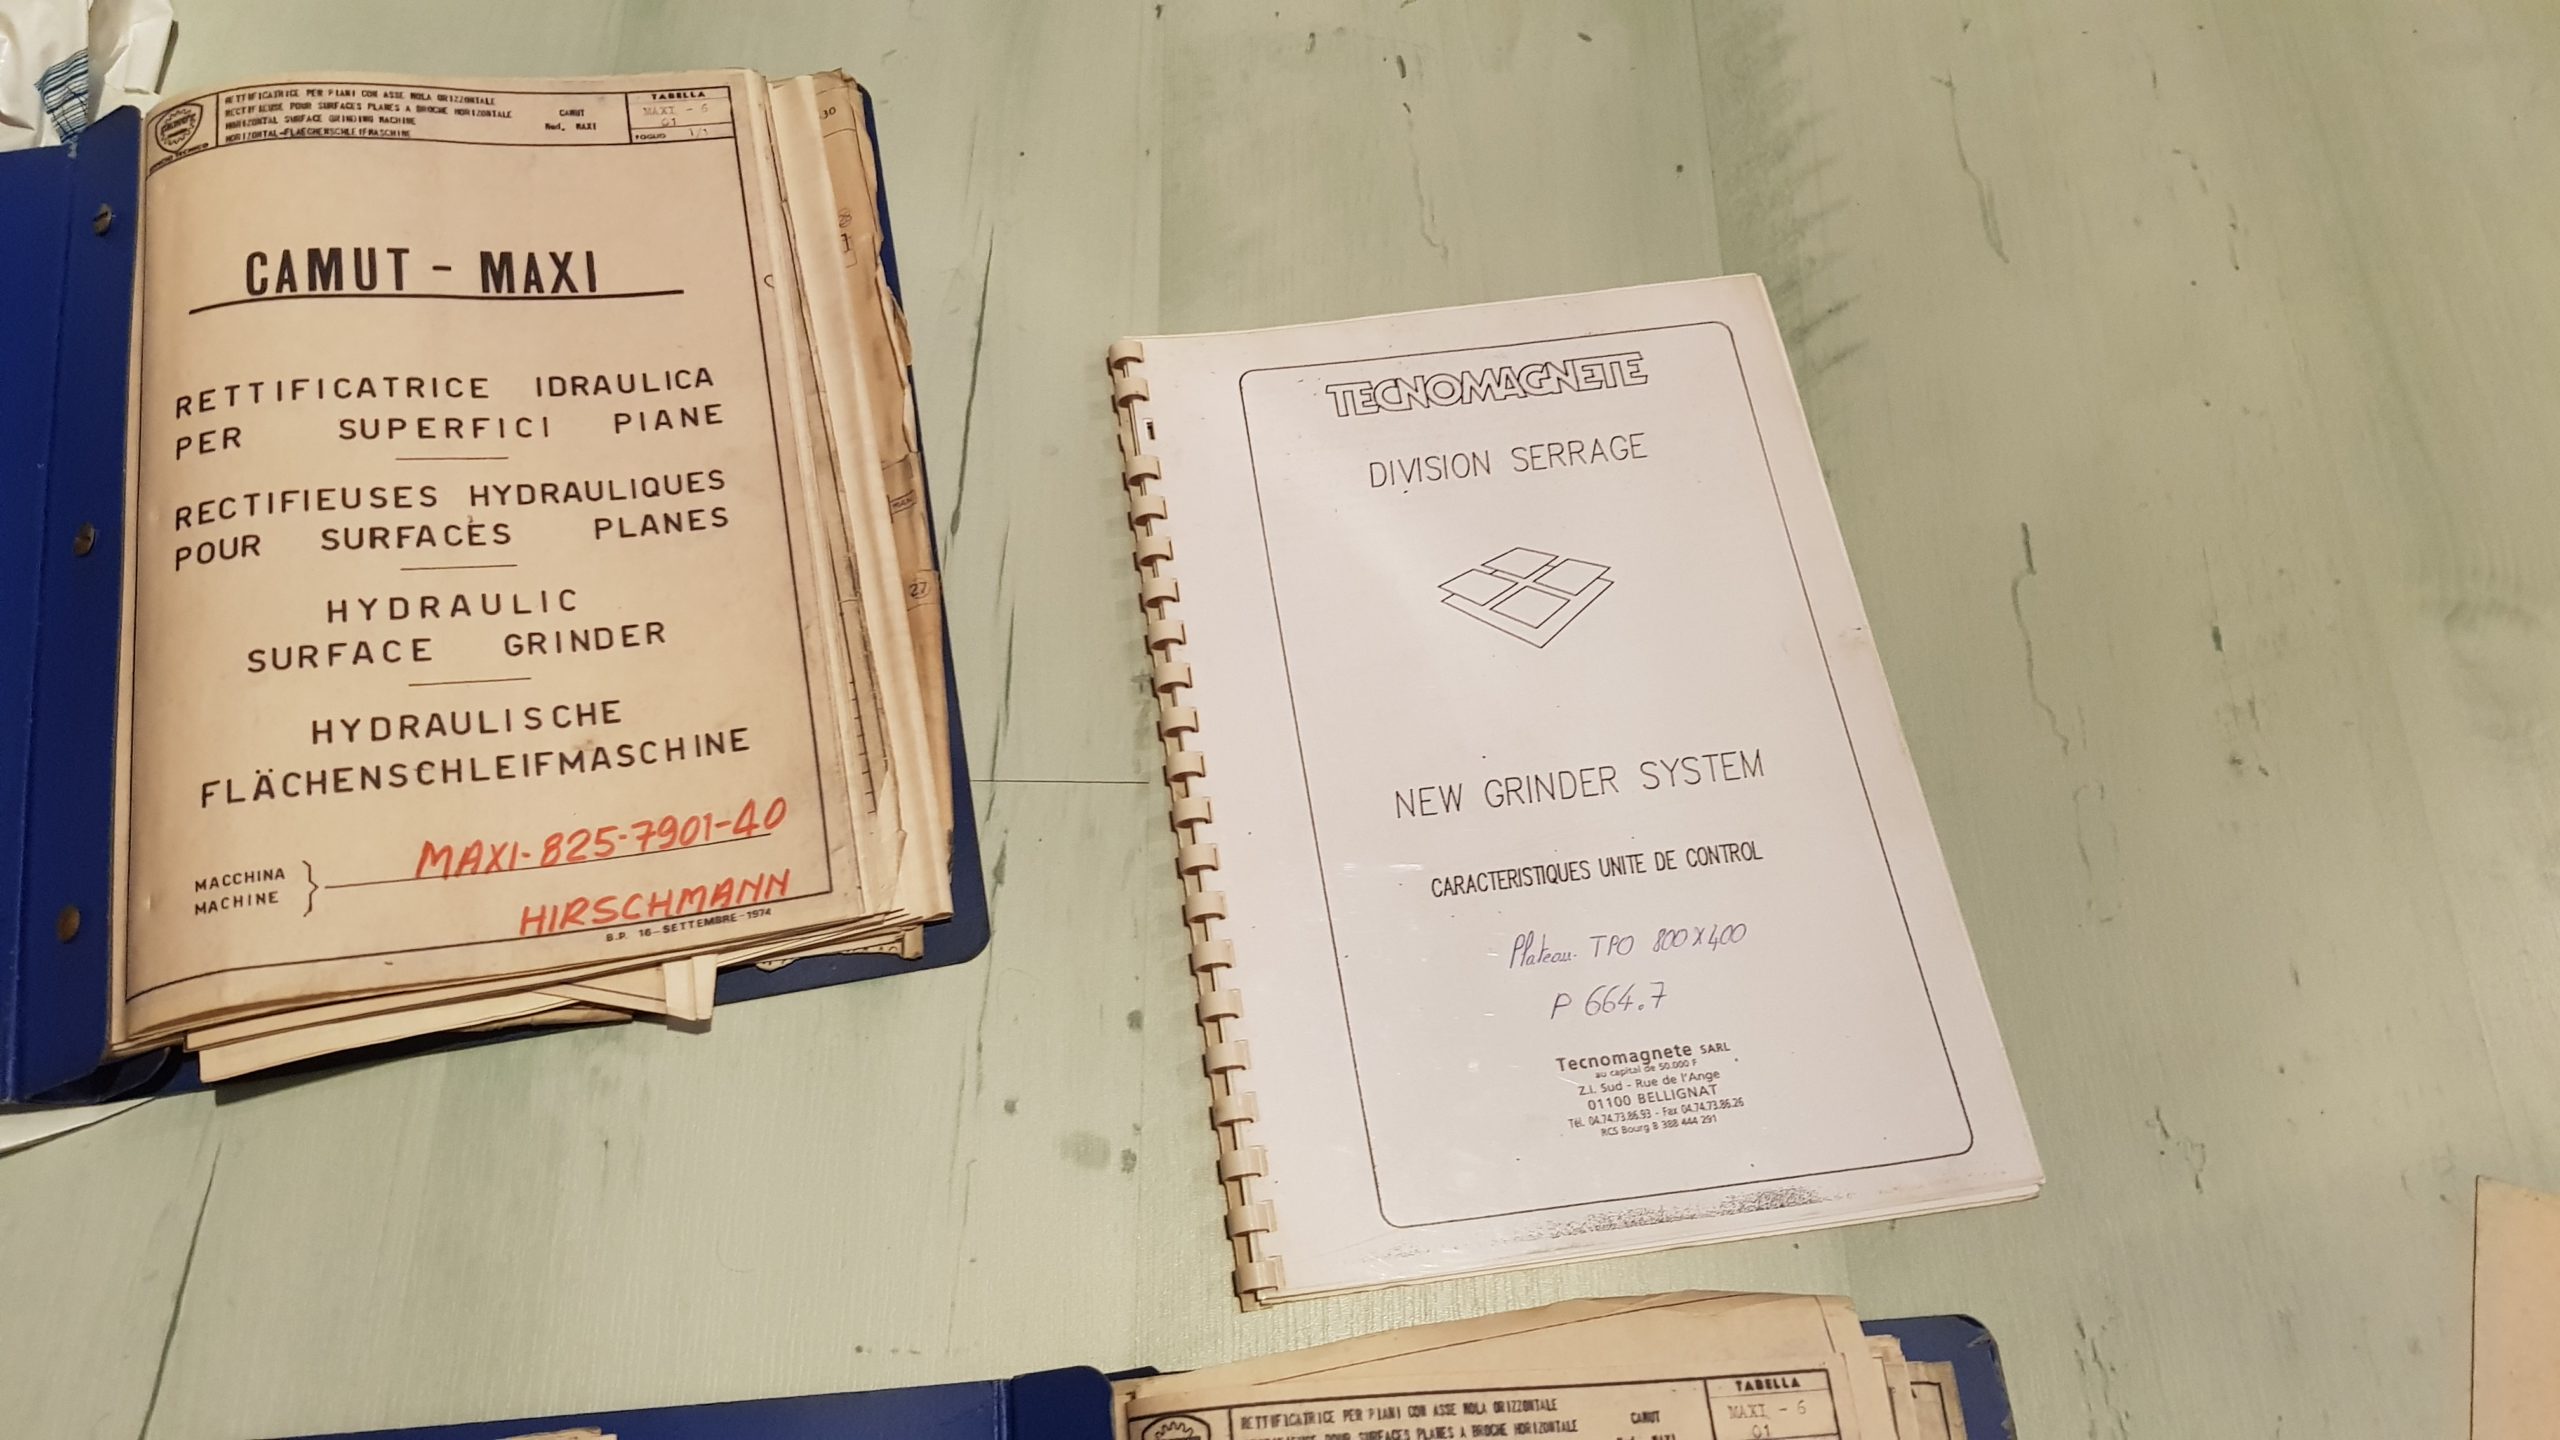 RETTIFICATRICE PER PIANI CON ASSE MOLA ORIZZONTALE
RECTIFIEUSE POUR SURFACES PLANES A BROCHE HORIZONTALE
HORIZONTAL SURFACE GRINDING MACHINE
HORIZONTAL-FLAECHENSCHLEIFMASCHINE
CAMUT
Mod. MAXI
TABELLA
MAXI - 6
01
FOGLIO 1/1
CAMUT - MAXI
RETTIFICATRICE IDRAULICA
PER SUPERFICI PIANE
RECTIFIEUSES HYDRAULIQUES
POUR SURFACES PLANES
HYDRAULIC
SURFACE GRINDER
HYDRAULISCHE
FLÄCHENSCHLEIFMASCHINE
MACCHINA
MACHINE
MAXI-825-7901-40
HIRSCHMANN
B.P. 16-SETTEMBRE-1974
30
27
TECNOMAGNETE
DIVISION SERRAGE
NEW GRINDER SYSTEM
CARACTERISTIQUES UNITE DE CONTROL
Plateau TPO 800X400
P 664.7
Tecnomagnete SARL
au capital de 50.000 F
Z.I. Sud - Rue de l'Ange
01100 BELLIGNAT
Tél. 04.74.73.86.93 - Fax 04.74.73.86.26
RCS Bourg B 388 444 291
RETTIFICATRICE PER PIANI CON ASSE MOLA ORIZZONTALE
POUR SURFACES PLANES A BROCHE HORIZONTALE
CAMUT
TABELLA
MAXI - 6
01